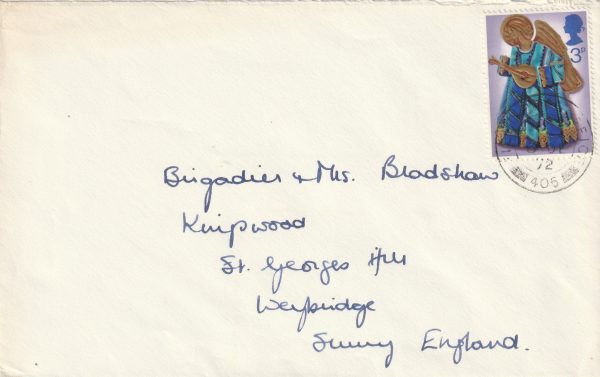 3P
72
406
Brigadier & Mrs. Bradshaw
Kingswood
St. Georges Hill
Weybridge
Surrey England.